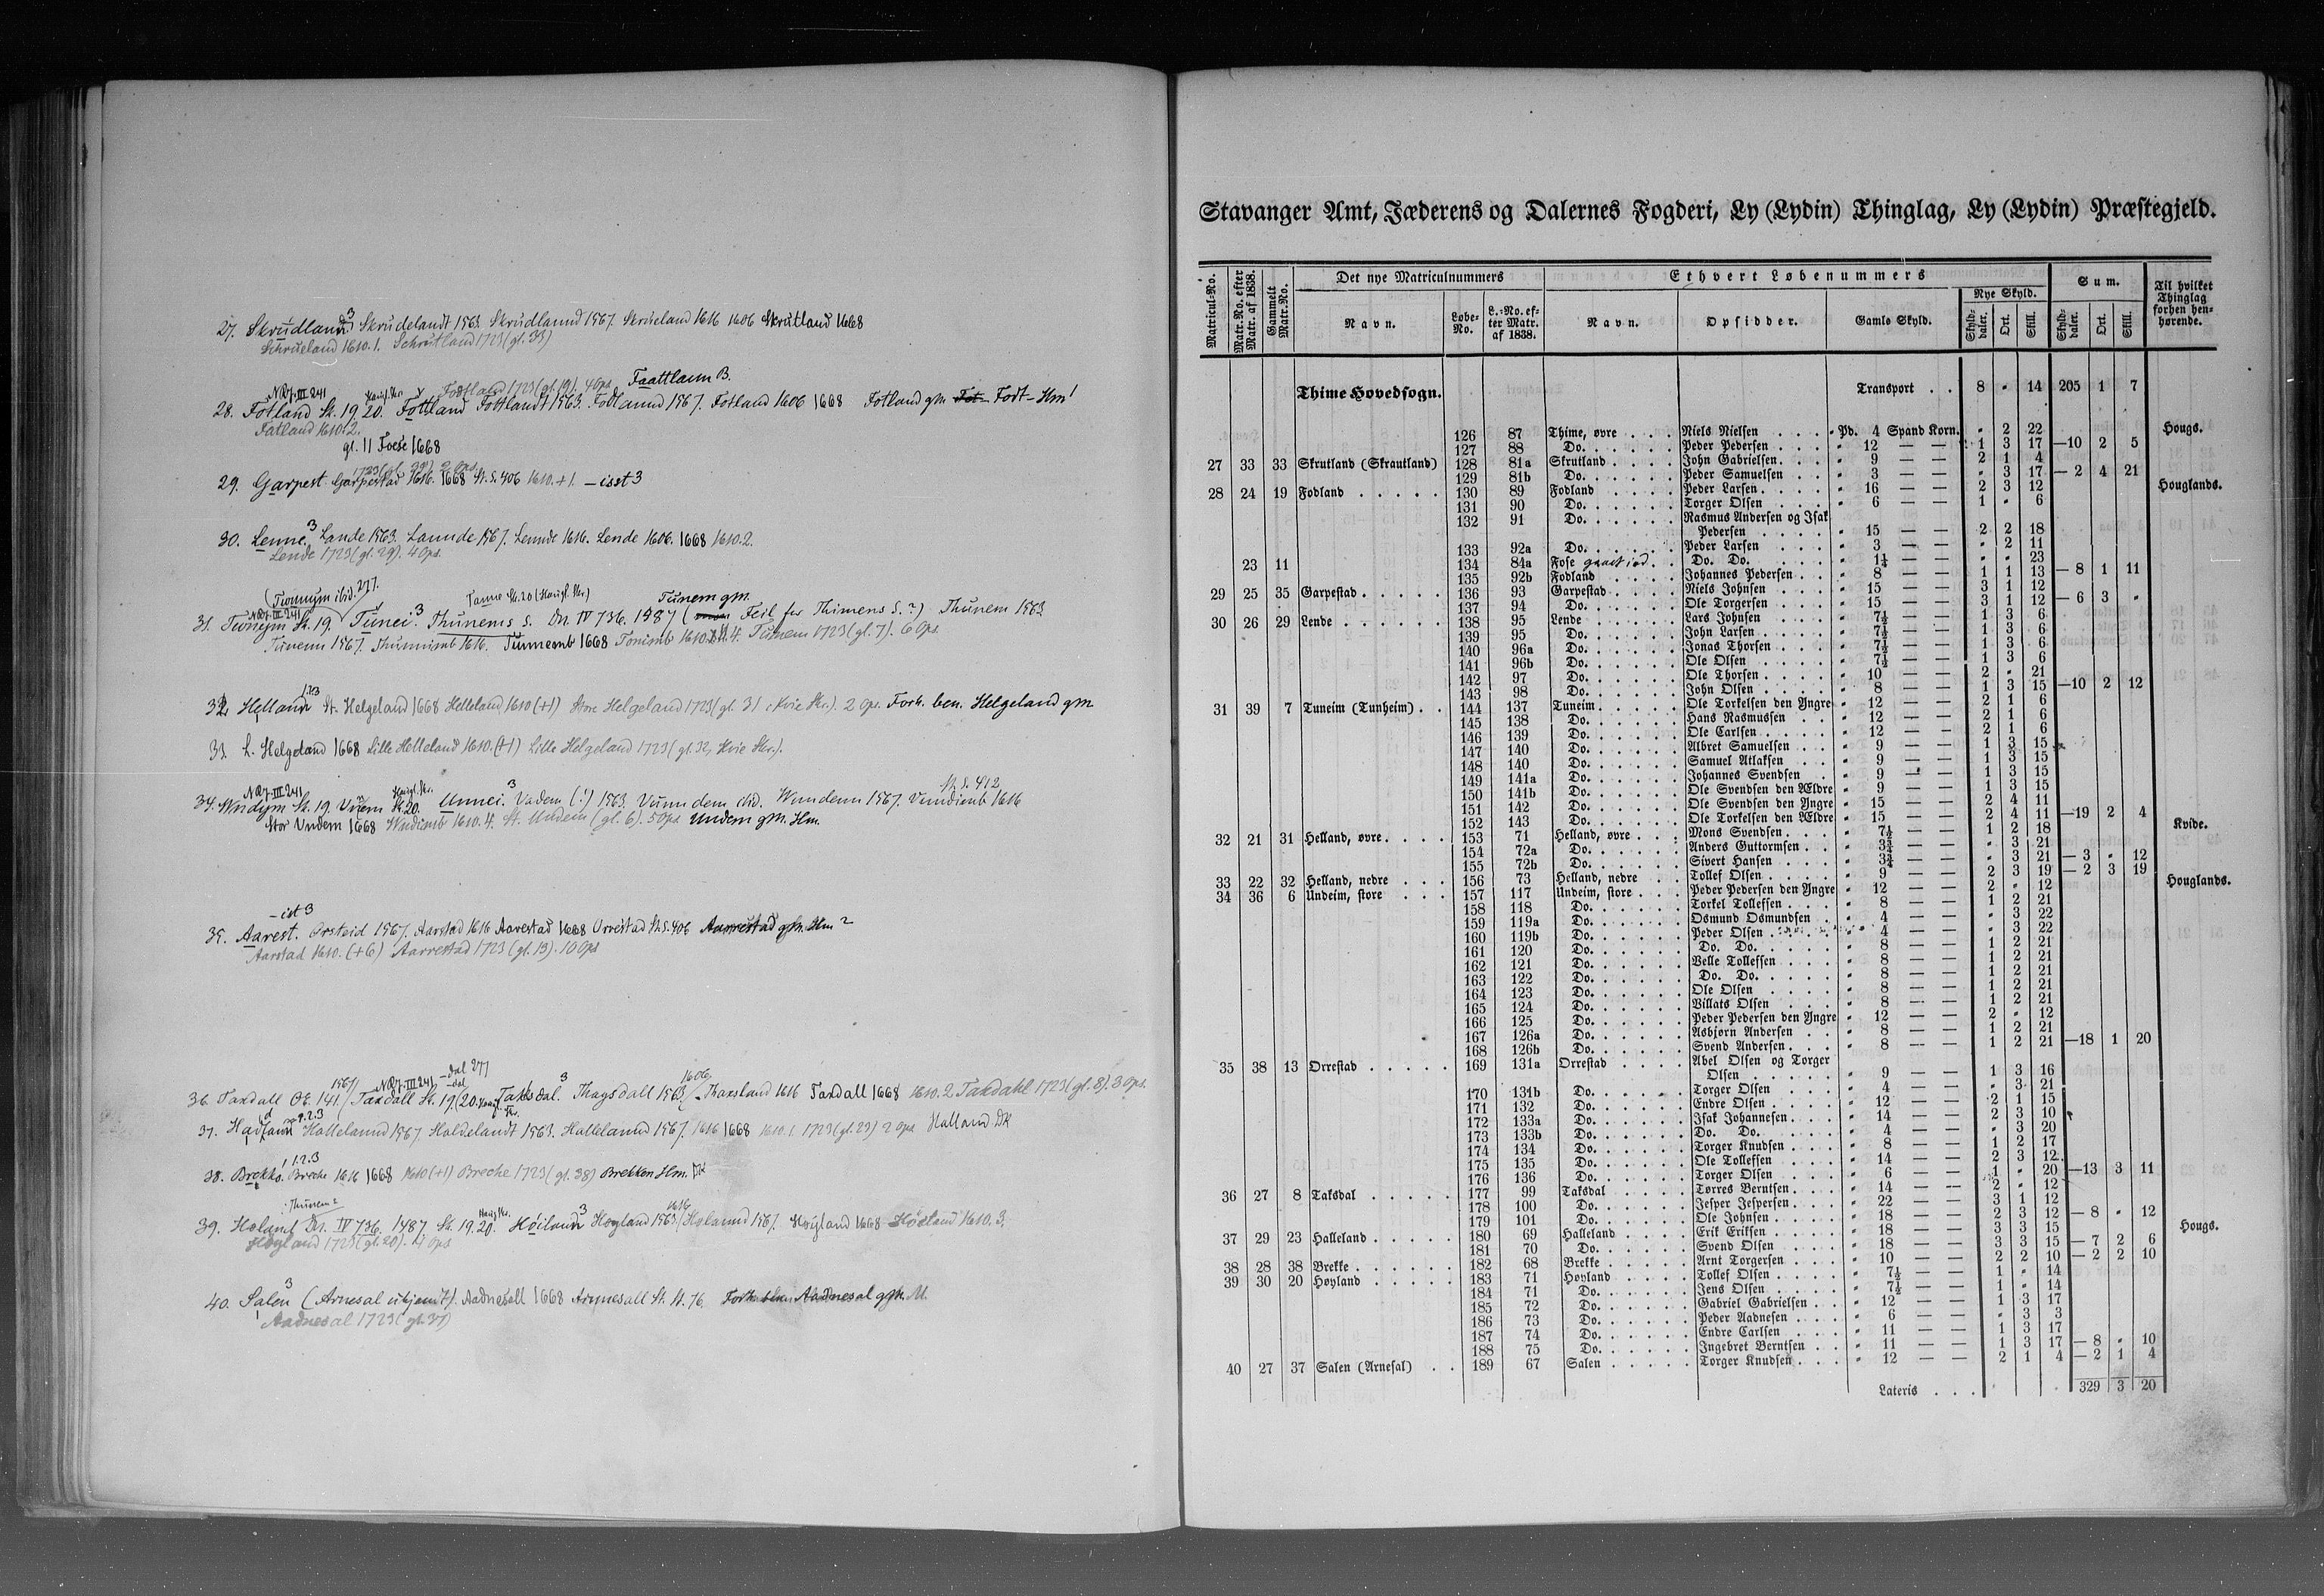 27. Skrudland 3 Skrudelandt 1563. Skrudlannd 1567. Skrueland 1616 1606 Skrutland 1668
Schrueland 1610.1. Schrutland 1723 (gl. 33)
NRJ. III 241 Fodtland 1723 (gl. 19). 4 Ops. Faattlann B.
28. Fotland St. 19. 20. Fottland Fottlandt 1563. Fodlannd 1567. Fotland 1606 1668 Fotland gm. Fodt- Hm!
Fatland 1610.2.
gl. 11 Foese 1668
29. Garpest. Garpestad 1616. 1668 St. S. 406 1610.+1. - isst 3
30. Lenne. 3 Lande 1563. Lannde 1567. Lennde 1616. Lende 1606. 1668 1610.2.
Lende 1723 (gl. 29). 4 Ops.
(Tionnym ibid. 277. Tunem gm.
31. St. 19. Tunei. 3 Thunems S. Dn IV 736. 1487 ( Feil for Thimens S.?) Thunem 1563.
Tunenn 1567. Thunnimb 1616. Tunnemb 1668 Tonimb 1610. 4. Tunem 1723 (gl. 7). 6 Ops.
32. Helland St. Helgeland 1668 Helleland 1610 (+1) Store Helgeland 1723 (gl. 31 i Kvie Skr.). 2 Ops. Forh. ben. Helgeland gm
33. L. Helgeland 1668 Lille Helleland 1610. (+1) Lille Helgeland 1723 (gl. 32, Kvie Skr.).
NRJ. III 241 St. S. 412
34. Wndym St. 19. Vnem St. 20. Unnei. 3 Vadem (!) 1563. Vunndem ibid. Wundenn 1567. Vundimb 1616
Stor Vndem 1668 Wndimb 1610. 4. St. Undem (gl. 6). 5 Ops. Undem gm. Hm.
- ist 3
35. Aarest. Orsteid 1567. Aarstad 1616 Aarestad 1668 Orrestad St. S. 406 Aarrestad gm. Hm ?
Aarstad 1610. (+6) Aarrestad 1723 (gl. 13). 10 Ops
1567 NRJ. III 241 - dal 277 1606.
36. Taxdall OE. 141. Taxdall St. 19 (20. Taksdal. 3 Thagsdall 1563. Thaxsland 1616 Taxdall 1668 1610.2 Taxdahl 1723 (gl. 8). 3 Ops.
37. Hadland Hallelannd 1567. Haldelandt 1563. Hallelannd 1567. 1616 1668 1610.1. 1723 (gl. 23) 2 Ops Halland DK
38. Brekko. 1.2.3 Breche 1616 1668 1610 (+1) Breche 1723 (gl. 38) Brekken Hm. DK
: Thunem?
39. Høland Dn. IV 736. 1487 St. 19. 20. Høiland 3 Høyland 1563. 1616 Hølannd 1567. Høyland 1668 Høxland 1610. 3.
Høyland 1723 (gl. 20). 4 Ops
40. Salen 3 (Arnesal ukjendt). Aadnesall 1668 Arnnesall St. St. 76. Forh. ben. Aadnesal gm. M.
Aadnesal 1723 (gl. 37)
Stavanger Amt, Jæderens og Dalernes Fogderi, Ly (Lydin) Thinglag, Ly (Lydin) Præstegjeld.
Matricul-No. | Matr. No. efter Matr. af 1838. | Gammelt Matr. No. | Det nye Matriculnummers | Ethvert Løbenummers | Sum. | Til hvilket Thinglag forhen henhørende.
Navn. | Løbe-No. | L.-No. efter Matr. af 1838. | Navn. | Opsidder. | Gamle Skyld. | Nye Skyld. Skylddaler. Ort. Skill. | Skylddaler. Ort. Skill.
Thime Hovedsogn. Transport . . 8 " 14 205 1 7
126 87 Thime, øvre . . . Niels Nielsen . . . . " Pd. 4 Spand Korn. " 2 22 Hougs.
127 88 Do. . . . . . Peder Pedersen . . . . " 12 — — 1 3 17 —10 2 5
27 33 33 Skrutland (Skrautland) 128 81a Skrutland . . . . John Gabrielsen. . . . " 9 — — 2 1 4
129 81b Do. . . . . . Peder Samuelsen . . " 3 — — " 3 17 — 2 4 21
28 24 19 Fodland . . . . . 130 89 Fodland . . . . Peder Larsen . . . . " 16 — — 2 3 12 Houglands.
131 90 Do. . . . . . Torger Olsen . . . . " 6 — — 1 " 6
132 91 Do. . . . . . Rasmus Andersen og Isak
Pedersen . . . . " 15 — — 2 2 18
133 92a Do. . . . . . Peder Larsen . . . " 3 — — " 2 11
23 11 134 84a Fose . . Do. Do. . . . . " 1¼ — — " " 23
135 92b Fodland . . . . Johannes Pedersen . . " 8 — — 1 1 13 — 8 1 11
29 25 35 Garpestad . . . . . 136 93 Garpestad . . . . Niels Johnsen . . . . " 15 — — 3 1 12
137 94 Do. . . . . . Ole Torgersen . . . " 15 — — 3 1 12 — 6 3 "
30 26 29 Lende . . . . . . 138 95 Lende . . . . . Lars Johnsen . . . . " 7½ — — 1 3 6
139 95 Do. . . . . . John Larsen . . . . . " 7½ — — 1 3 6
140 96a Do. . . . . . Jonas Thorsen . . . . " 7½ — — 1 3 6
141 96b Do. . . . . . Ole Olsen . . . . . " 7½ — — 1 3 6
142 97 Do. . . . . . Ole Thorsen . . . . . " 10 — — 2 " 21
143 98 Do. . . . . . John Olsen . . . . . " 8 — — 1 3 15 —10 2 12
31 39 7 Tuneim (Tunheim) . . 144 137 Tuneim . . . . . Ole Torkelsen den Yngre " 12 — — 2 1 6
145 138 Do. . . . . . Hans Rasmussen . . " 12 — — 2 1 6
146 139 Do. . . . . . Ole Carlsen . . . . . " 12 — — 2 1 6
147 140 Do. . . . . . Albret Samuelsen . . . " 9 — — 1 3 15
148 140 Do. . . . . . Samuel Atlaksen . . " 9 — — 1 3 15
149 141a Do. . . . . . Johannes Svendsen . " 9 — — 1 3 15
150 141b Do. . . . . . Ole Svendsen den Ældre " 9 — — 1 3 15
151 142 Do. . . . . . Ole Svendsen den Yngre " 15 — — 2 4 11
152 143 Do. . . . . . Ole Torkelsen den Ældre " 15 — — 2 4 11 —19 2 4
32 21 31 Helland, øvre . . . . 153 71 Helland, øvre . . . Mons Svendsen . . . " 7½ — — 1 2 18 Kvide.
154 72a Do. . . . . . Anders Guttormsen . . " 3¾ — — " 3 21
155 72b Do. . . . . . Sivert Hansen . . . . " 3¾ — — " 3 21 — 3 " 12
33 22 32 Helland, nedre . . . 156 73 Helland, nedre . . Tollef Olsen . . . . . " 9 — — 2 3 19 — 2 3 19
34 36 6 Undeim, store . . . 157 117 Undeim, store . . . Peder Pedersen den Yngre " 12 — — 2 " 12 Houglands.
158 118 Do. . . . . . Torkel Tollefsen . . . " 8 — — 1 2 21
159 119a Do. . . . . . Osmund Osmundsen . " 4 — — " 3 22
160 119b Do. . . . . . Peder Olsen . . . . " 4 — — " 3 22
161 120 Do. . . . . . Do. Do. . . . . . " 8 — — 1 2 21
162 121 Do. . . . . . Velle Tollefsen . . . . " 8 — — 1 2 21
163 122 Do. . . . . . Do. Do. . . . . . " 8 — — 1 2 21
164 123 Do. . . . . . Ole Olsen . . . . . " 8 — — 1 2 21
165 124 Do. . . . . . Villats Olsen . . . . " 8 — — 1 2 21
166 125 Do. . . . . . Peder Pedersen den Yngre " 12 — — 2 " 12
167 126a Do. . . . . . Asbjørn Andersen . . " 8 — — 1 2 21
168 126b Do. . . . . . Svend Andersen . . . " 8 — — 1 2 21 —18 1 20
35 38 13 Orrestad . . . . . 169 131a Orrestad . . . . Abel Olsen og Torger
Olsen . . . . . . " 9 — — 1 3 16
170 131b Do. . . . . . Torger Olsen . . . . " 4 — — " 3 21
171 132 Do. . . . . . Endre Olsen . . . . " 12 — — 2 1 15
172 133a Do. . . . . . Isak Johannesen . . . " 14 — — 2 3 10
173 133b Do. . . . . . Do. Do. . . . . . " 4 — — " 3 20
174 134 Do. . . . . . Torger Knudsen . . . . " 8 — — 1 2 17
175 135 Do. . . . . . Ole Tollefsen . . . . " 14 — — 2 3 12
176 136 Do. . . . . . Torger Olsen . . . . " 6 — — 1 " 20 —13 3 11
36 27 8 Taksdal . . . . . 177 99 Taksdal . . . . Tørres Berntsen . . . " 14 — — 2 " 12
178 100 Do. . . . . . Jesper Jespersen . . . " 22 — — 3 1 12
179 101 Do. . . . . . Ole Johnsen . . . . " 18 — — 2 3 12 — 8 " 12
37 29 23 Halleland . . . . . 180 69 Halleland . . . . Erik Eriksen . . . . " 18 — — 3 3 15 Hougs.
181 70 Do. . . . . . Svend Olsen . . . . " 18 — — 3 3 15 — 7 2 6
38 28 38 Brekke . . . . . . 182 68 Brekke . . . . . Arnt Torgersen . . . . " 10 — — 2 2 10 — 2 2 10
39 30 20 Høyland . . . . . 183 71 Høyland . . . . Tollef Olsen . . . . . " 7½ — — 1 " 14
184 71 Do. . . . . . Jens Olsen . . . . . " 7½ — — 1 " 14
185 72 Do. . . . . . Gabriel Gabrielsen . . " 12 — — 1 3 17
186 73 Do. . . . . . Peder Aadnesen . . . . " 6 — — " 3 3
187 74 Do. . . . . . Endre Carlsen . . . . " 11 — — 1 3 17
188 75 Do. . . . . . Ingebret Berntsen . . " 11 — — 1 3 17 — 8 " 10
40 27 37 Salen (Arnesal) . . 189 67 Salen . . . . . Torger Knudsen . . . " 12 — — 2 1 4 — 2 1 4
Lateris . . . 329 3 20